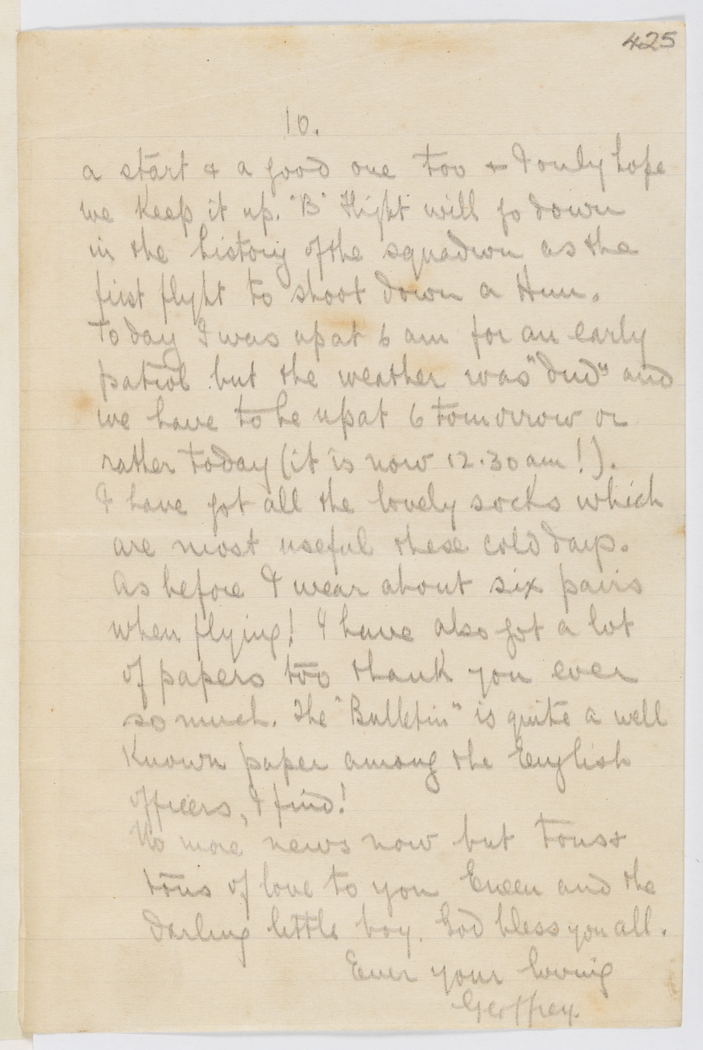 425
10.
a start & a good one too & I only hope
we keep it up. "B" Flight will go down
in the history of the squadron as the
first flight to shoot down a Hun.
Today I was up at 6 am for an early
patrol but the weather was "dud" and
we have to be up at 6 tomorrow or
rather today (it is now 12.30 am!).
I have got all the lovely socks which
are most useful these cold days.
As before I wear about six pairs
when flying! I have also got a lot
of papers too thank you ever
so much. The "Bulletin" is quite a well
known paper among the English
officers, I find!
No more news now but tons &
tons of love to you and the
darling little boy. God bless you all.
Ever your loving
Geoffrey.